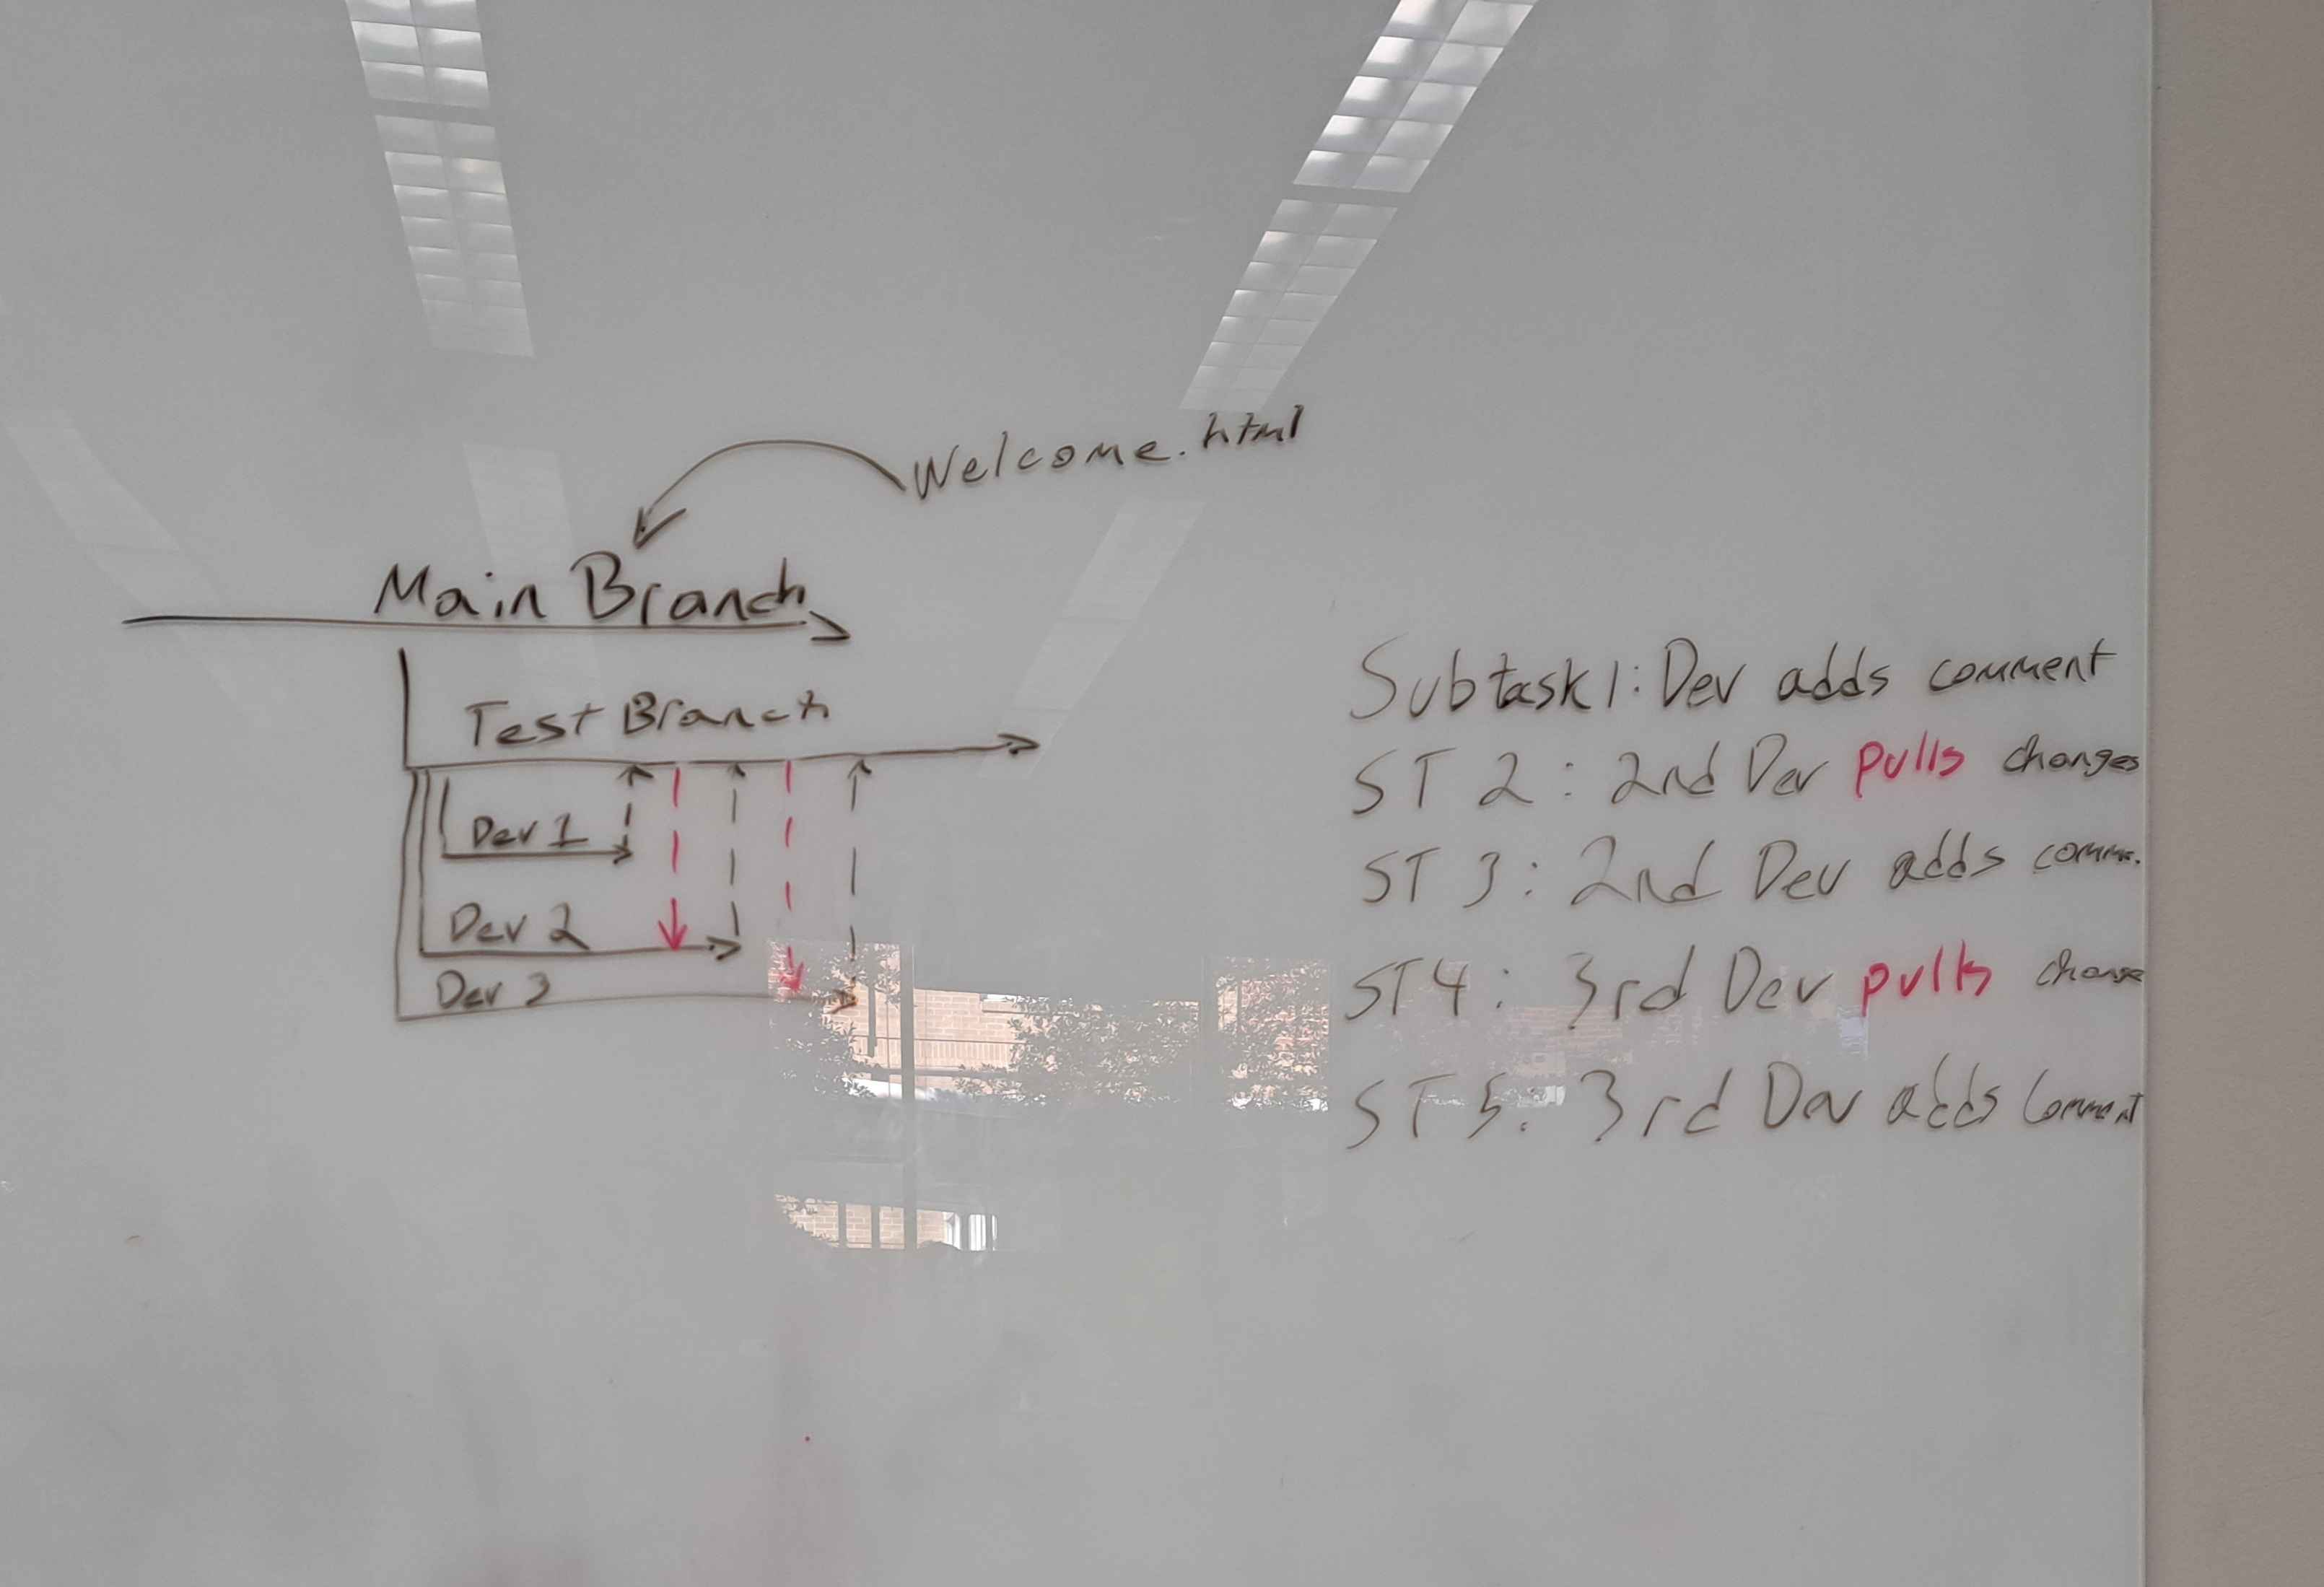 Welcome.html
Main Branch
Test Branch
Dev 1
Dev 2
Dev 3
Subtask 1: Dev adds comment
ST 2: 2nd Dev pulls changes
ST 3: 2nd Dev adds comm.
ST4: 3rd Dev pulls change
ST 5: 3rd Dev adds Comment